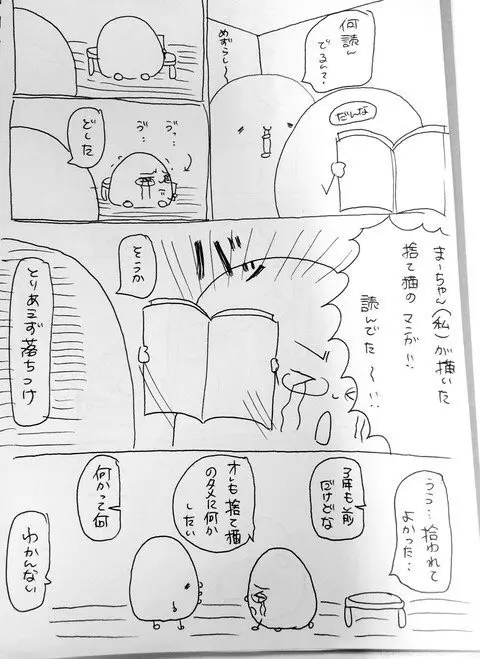 何読ん
でるん?
だんな
めずらし〜
ゔっ…
ゔ…
どした
まーちゃん(私)が描いた
捨て猫のマンガ…
読んでた〜…
バッ
そうか
とりあえず落ちつけ
うう…拾われて
よかった…
3年も前
だけどな
オレも捨て猫
のタメに何か
したい
何かって何
わかんない